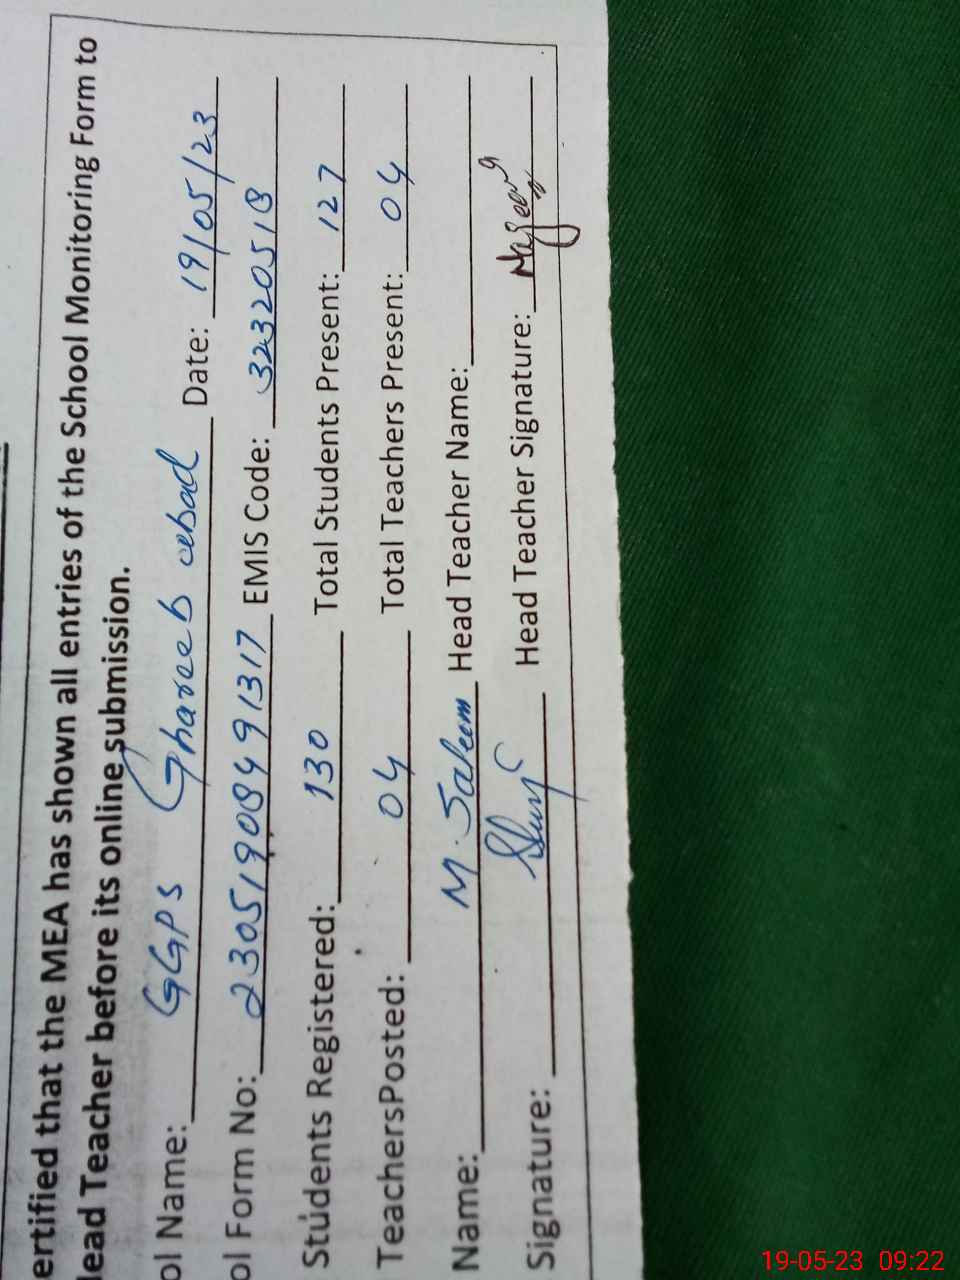 ertified that the MEA has shown all entries of the School Monitoring Form to
lead Teacher before its online submission.
ol Name: GGPS Ghareeb abad Date: 19/05/23
ol Form No: 23051908491317 EMIS Code: 32320518
Students Registered: 130 Total Students Present: 127
TeachersPosted: 04 Total Teachers Present: 04
Name: M. Saleem Head Teacher Name:
Signature: Head Teacher Signature:
19-05-23 09:22